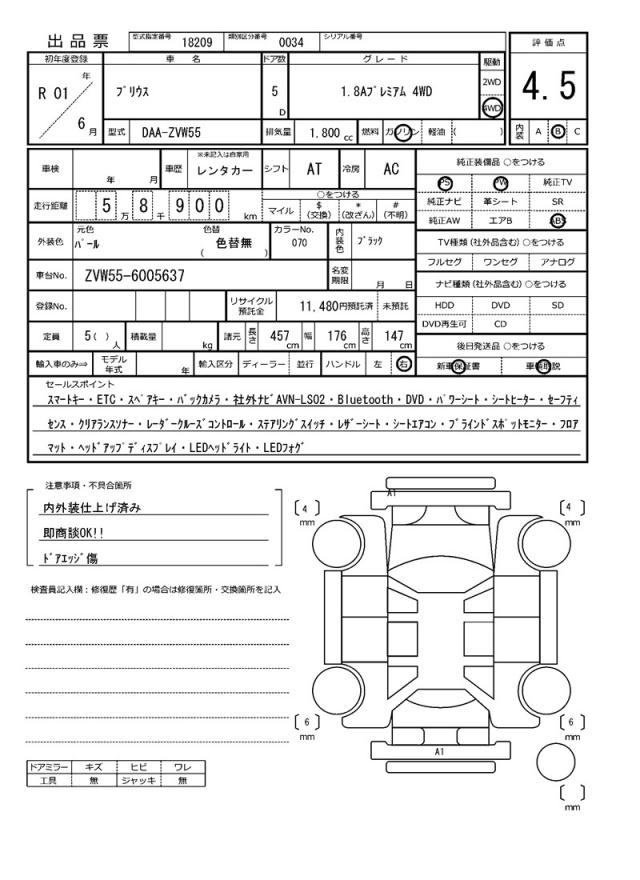 出品票 型式指定番号 18209 類別区分番号 0034 シリアル番号
評価点
4.5
初年度登録 車名 ドア数 グレード 駆動
R 01 年 6 月
プリウス 5 D 1.8Aプレミアム 4WD 2WD 4WD
型式 DAA-ZVW55 排気量 1.800 cc 燃料 ガソリン 軽油 ( ) 内装 A B C
車検 年 月 車歴 ※未記入は自家用 レンタカー シフト AT 冷房 AC
純正装備品 ○をつける
PS PW 純正TV
純正ナビ 革シート SR
純正AW エアB ABS
走行距離 5 万 8 千 9 0 0 km
○をつける
マイル $ (交換) * (改ざん) # (不明)
外装色 元色 パール 色替 色替無 ( ) カラーNo. 070 内装色 ブラック
TV種類 (社外品含む) ○をつける
フルセグ ワンセグ アナログ
車台No. ZVW55-6005637 名変期限 月 日
ナビ種類 (社外品含む) ○をつける
HDD DVD SD
DVD再生可 CD
登録No. リサイクル預託金 11,480円預託済 未預託
定員 5( ) 人 積載量 kg 諸元 長さ 457 cm 幅 176 cm 高さ 147 cm
後日発送品 ○をつける
新車保証書 車輌取説
輸入車のみ⇒ モデル年式 年 輸入区分 ディーラー・並行 ハンドル 左 右
セールスポイント
スマートキー・ETC・スペアキー・バックカメラ・社外ナビAVN-LS02・Bluetooth・DVD・パワーシート・シートヒーター・セーフティ
センス・クリアランスソナー・レーダークルーズコントロール・ステアリングスイッチ・レザーシート・シートエアコン・ブラインドスポットモニター・フロア
マット・ヘッドアップディスプレイ・LEDヘッドライト・LEDフォグ
注意事項・不具合箇所
内外装仕上げ済み
即商談OK!!
ドアエッジ傷
検査員記入欄:修復歴「有」の場合は修復箇所・交換箇所を記入
A1
[ 4 ] mm
[ 4 ] mm
[ 6 ] mm
[ 6 ] mm
A1
[ ] mm
ドアミラー キズ ヒビ ワレ
工具 無 ジャッキ 無